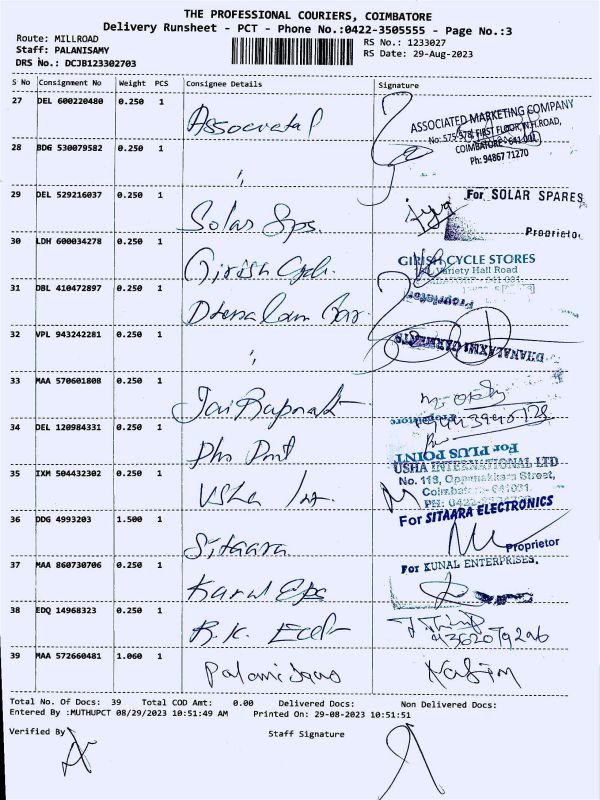 THE PROFESSIONAL COURIERS, COIMBATORE
Delivery Runsheet - PCT - Phone No.:0422-3505555 - Page No.:3
Route: MILLROAD
RS No.: 1233027
Staff: PALANISAMY
RS Date: 29-Aug-2023
DRS No.: DCJB123302703
S No Consignment No Weight PCS Consignee Details Signature
27 DEL 600220480 0.250 1 Associated
ASSOCIATED MARKETING COMPANY
No: 575-578, FIRST FLOOR, N.H.ROAD,
COIMBATORE - 641 001
Ph: 94867 71270
28 BDG 530079582 0.250 1 "
29 DEL 529216037 0.250 1 Solar Sps.
For SOLAR SPARES
Proprietor
30 LDH 600034278 0.250 1 Girish Cycle
GIRISH CYCLE STORES
Variety Hall Road
31 DBL 410472897 0.250 1
Proprietor
32 VPL 943242281 0.250 1 "
DHANALAXMI GARMENTS
33 MAA 570601808 0.250 1
Proprietor
34 DEL 120984331 0.250 1
For PLUS POINT
35 IXM 504432302 0.250 1 Usha Int
USHA INTERNATIONAL LTD
No. 113, Oppanakkara Street,
Coimbatore - 641001.
36 DDG 4993203 1.500 1 Sitaara
For SITAARA ELECTRONICS
Proprietor
37 MAA 860730706 0.250 1
For KUNAL ENTERPRISES.
38 EDQ 14968323 0.250 1 R.K.
39 MAA 572660481 1.060 1
Total No. Of Docs: 39 Total COD Amt: 0.00 Delivered Docs: Non Delivered Docs:
Entered By :MUTHUPCT 08/29/2023 10:51:49 AM Printed On: 29-08-2023 10:51:51
Verified By
Staff Signature